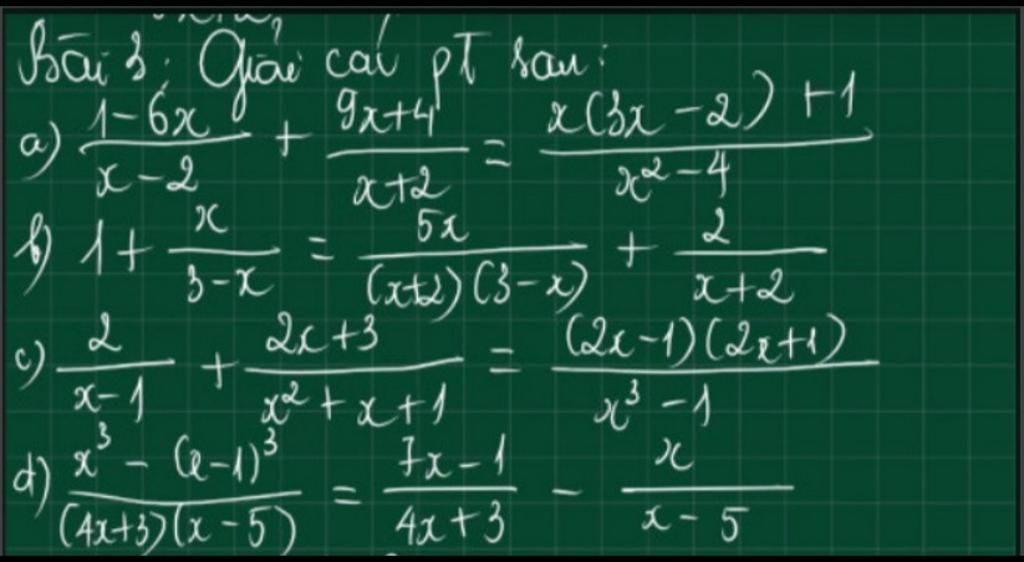 Bài 3: Giải các pT sau:
a) \frac{1-6x}{x-2} + \frac{9x+4}{x+2} = \frac{x(3x-2)+1}{x^2-4}
b) 1 + \frac{x}{3-x} = \frac{5x}{(x+2)(3-x)} + \frac{2}{x+2}
c) \frac{2}{x-1} + \frac{2x+3}{x^2+x+1} = \frac{(2x-1)(2x+1)}{x^3-1}
d) \frac{x^3-(x-1)^3}{(4x+3)(x-5)} = \frac{7x-1}{4x+3} - \frac{x}{x-5}